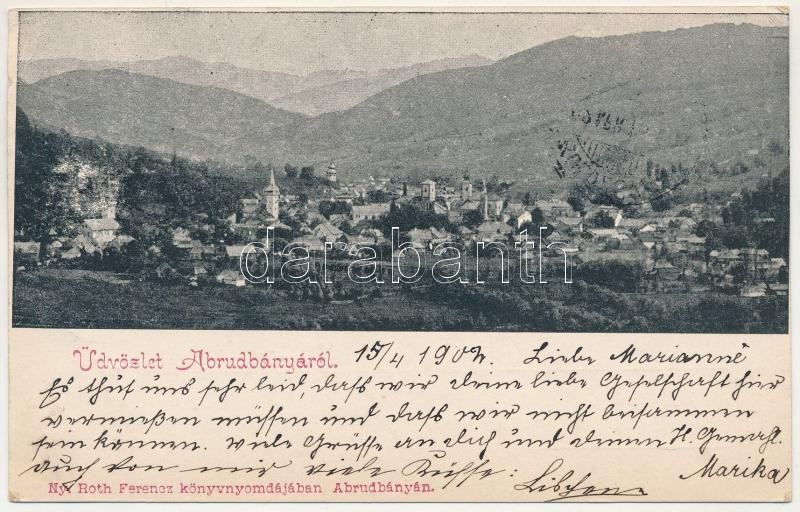 darabanth
Üdvözlet Abrudbányáról. 15/4 1902. Liebe Marianne
Es thut uns sehr leid, dass wir deine liebe Gesellschaft hier
vermießen müssen und dass wir nicht beisammen
sein können. Viele Grüsse an dich und deinen H. Gemahl.
auch von mir viele Küsse: Marika
Ny. Roth Ferencz könyvnyomdájában Abrudbányán.